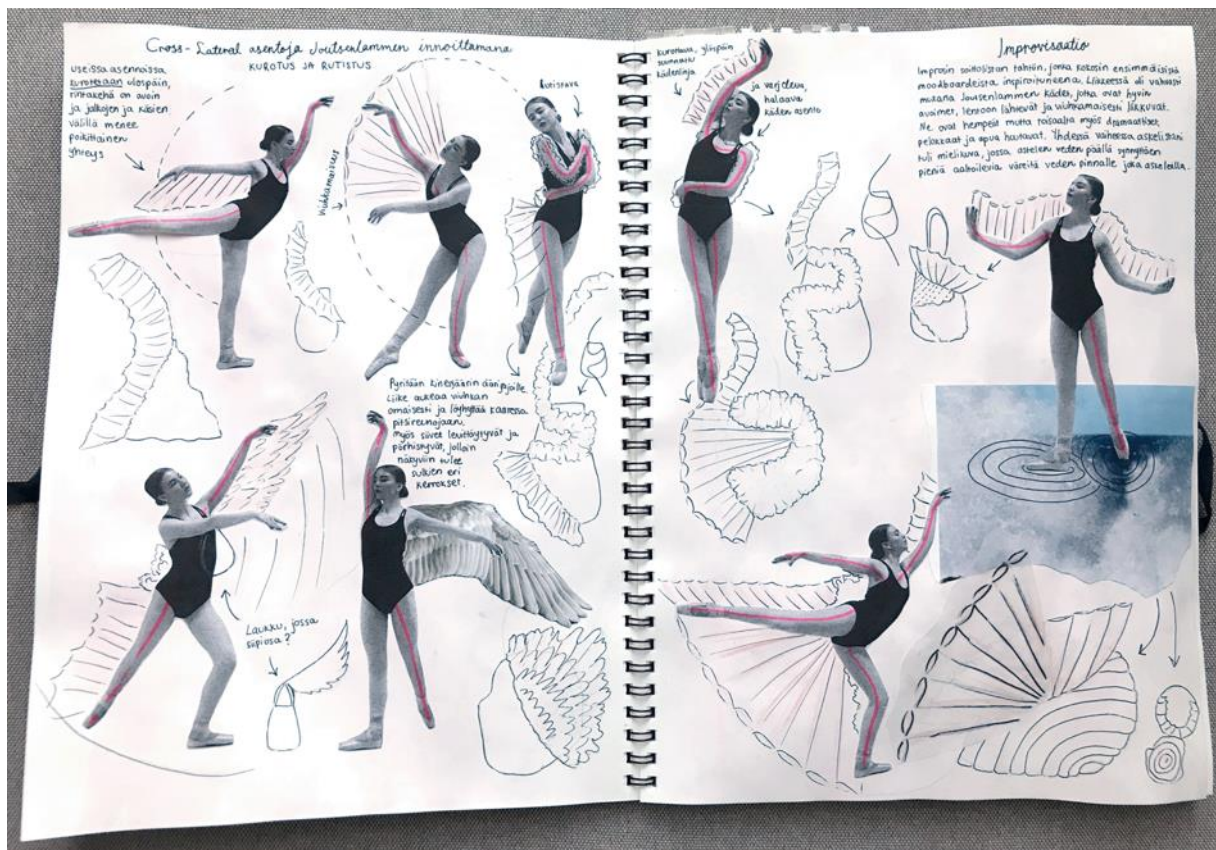 Cross-Lateral asentoja Joutsenlammen innoittamana
KUROTUS JA RUTISTUS
useissa asennoissa
kurotetaan ulospäin,
rintakehä on avoin
ja jalkojen ja käsien
välillä menee
poikittainen
yhteys
viuhkamaisuus
Rutistava
Pyritään kinesfäärin äärirajoille
Liike aukeaa viuhkan
omaisesti ja löyhyttää kaaressa
pitsireunojaan,
myös siivet levittäytyvät ja
pörhistyvät, jolloin
näkyviin tulee
sulkien eri
kerrokset.
Laukku, jossa
siipiosa?
kurottava, ylöspäin
suunnattu
kädenlinja
ja varjeleva,
halaava
käden asento
Improvisaatio
Improsin soittolistan tahtiin, jonka kokosin ensimmäisistä
moodboardeista inspiroituneena. Liikkeessä oli vahvasti
mukana Joutsenlammen kädet, jotka ovat hyvin
avoimet, lentoon lähtevät ja viuhkamaisesti liikkuvat.
Ne ovat hempeät mutta toisaalta myös dramaattiset,
pelokkaat ja apua huutavat. Yhdessä vaiheessa askelistani
tuli mielikuva, jossa astelen veden päällä synnyttäen
pieniä aaltoilevia väreitä veden pinnalle joka askeleella.